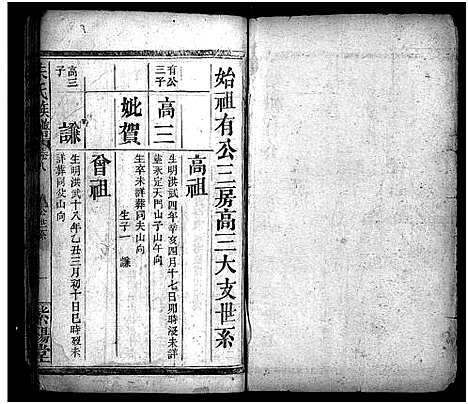 始祖有公三房高三大支世系
高祖
有公三子
高三
生明洪武四年辛亥四月十七日卯時没未詳
葬永定天門山子山午向
妣賀
生卒未詳葬同夫山向
生子一 謙
曾祖
高三子
謙
生明洪武十八年乙丑三月初十日巳時没未
詳葬同父山向
氏族譜
紫陽堂